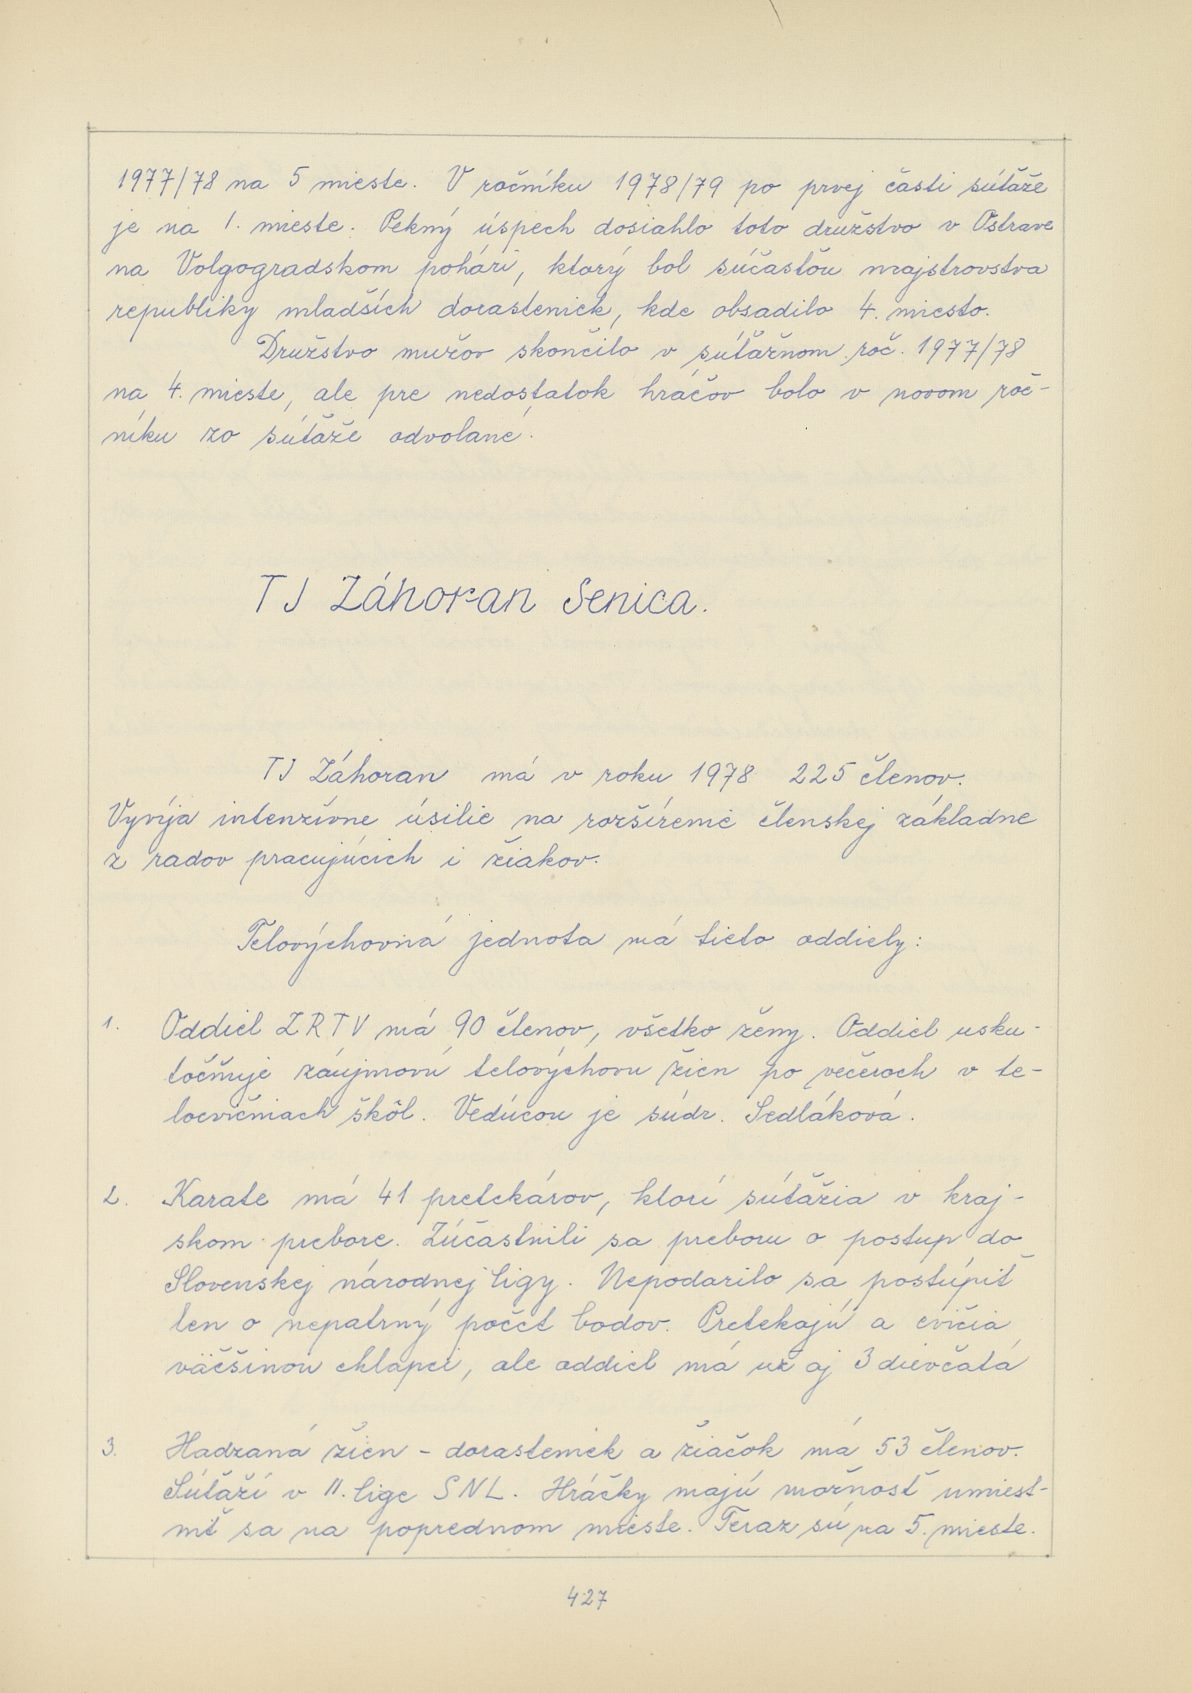 1977/78 na 5 mieste. V ročníku 1978/79 po prvej časti súťaže
je na 1. mieste. Pekný úspech dosiahlo toto družstvo v Ostrave
na Volgogradskom pohári, ktorý bol súčasťou majstrovstva
republiky mladších dorasteniek, kde obsadilo 4. miesto.
Družstvo mužov skončilo v súťažnom roč. 1977/78
na 4. mieste, ale pre nedostatok hráčov bolo v novom roč-
níku zo súťaže odvolané.
TJ Záhoran Senica.
TJ Záhoran má v roku 1978 225 členov.
Vyvíja intenzívne úsilie na rozšírenie členskej základne
z radov pracujúcich i žiakov.
Telovýchovná jednota má tieto oddiely:
1. Oddiel ZRTV má 90 členov, všetko ženy. Oddiel usku-
točňuje záujmovú telovýchovu žien po večeroch v te-
locvičniach škôl. Vedúcou je súdr. Sedláková.
2. Karate má 41 pretekárov, ktorí súťažia v kraj-
skom prebore. Zúčastnili sa preboru o postup do
Slovenskej národnej ligy. Nepodarilo sa postúpiť
len o nepatrný počet bodov. Pretekajú a cvičia
väčšinou chlapci, ale oddiel má už aj 3 dievčatá
3. Hadzaná žien - dorasteniek a žiačok má 53 členov.
Súťaží v II. lige SNL. Hráčky majú možnosť umiest-
niť sa na poprednom mieste. Teraz sú na 5. mieste.
427